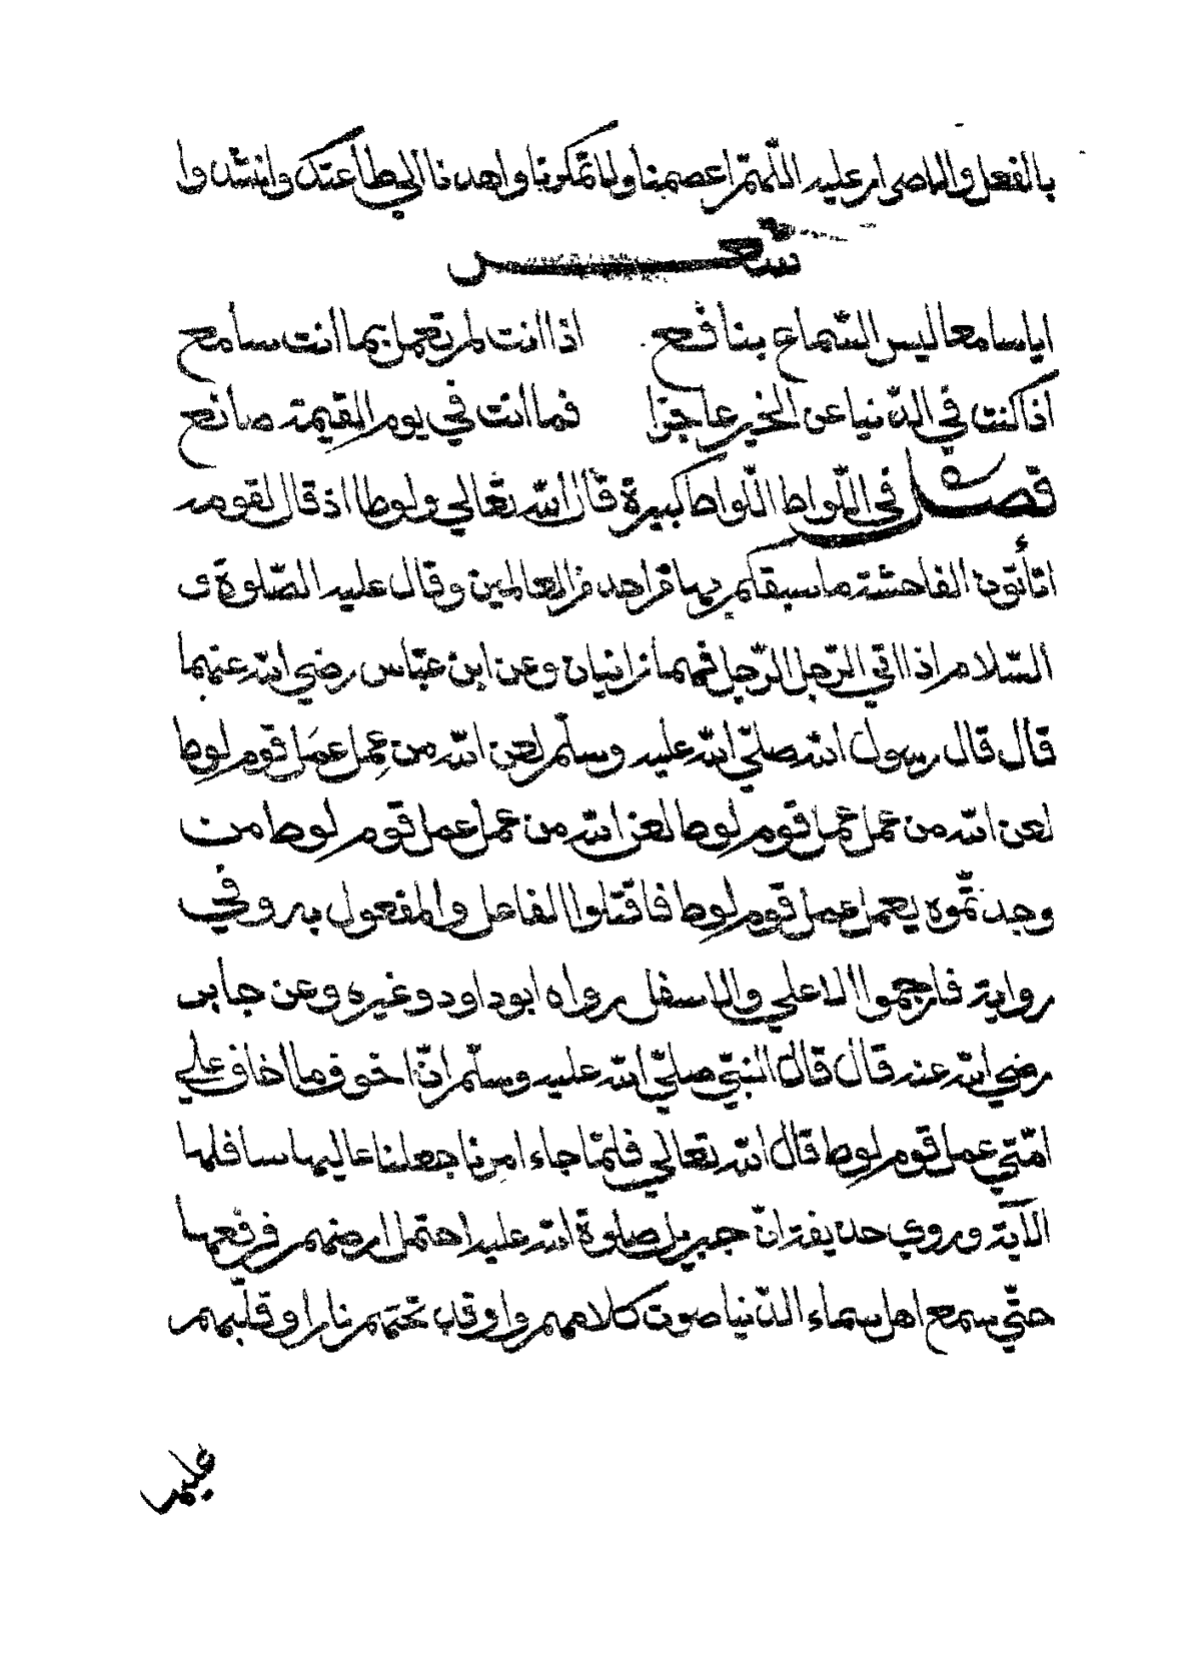 بالفعل والاصرار عليه اللّهمّ اعصمنا ولا تمكرنا واهدنا الي طاعتك وانشدوا
شعر
ايا سامعا ليس السّماع بنافع اذا انت لم تعمل بما انت سامع
اذا كنت في الدّنيا عن الخير عاجزا فما انت في يوم القيمة صانع
فصل في اللّواط اللّواط كبيرة قال الله تعالي ولوطا اذ قال لقومه
اتأتون الفاحشة ما سبقكم بها من احد من العالمين وقال عليه الصّلوة و
السّلام اذا اتي الرّجل الرّجل فهما زانيان وعن ابن عبّاس رضي الله عنهما
قال قال رسول الله صلّي الله عليه وسلّم لعن الله من عمِل عمَل قوم لوط
لعن الله من عمل عمل قوم لوط لعن الله من عمل عمل قوم لوط من
وجدتّموه يعمل عمل قوم لوط فاقتلوا الفاعل والمفعول به وفي
رواية فارجموا الاعلي والاسفل رواه ابو داود وغيره وعن جابر
رضي الله عنه قال قال النبيّ صلّي الله عليه وسلّم انّ اخوف ما اخاف علي
امّتي عمل قوم لوط قال الله تعالي فلمّا جاء امرنا جعلنا عاليها سافلها
الآية وروي حذيفة انّ جبريل صلوة الله عليه احتمل ارضهم فرفعها
حتّي سمع اهل سماء الدّنيا صوت كلامهم واوقد تحتهم نارا وقلّبهم